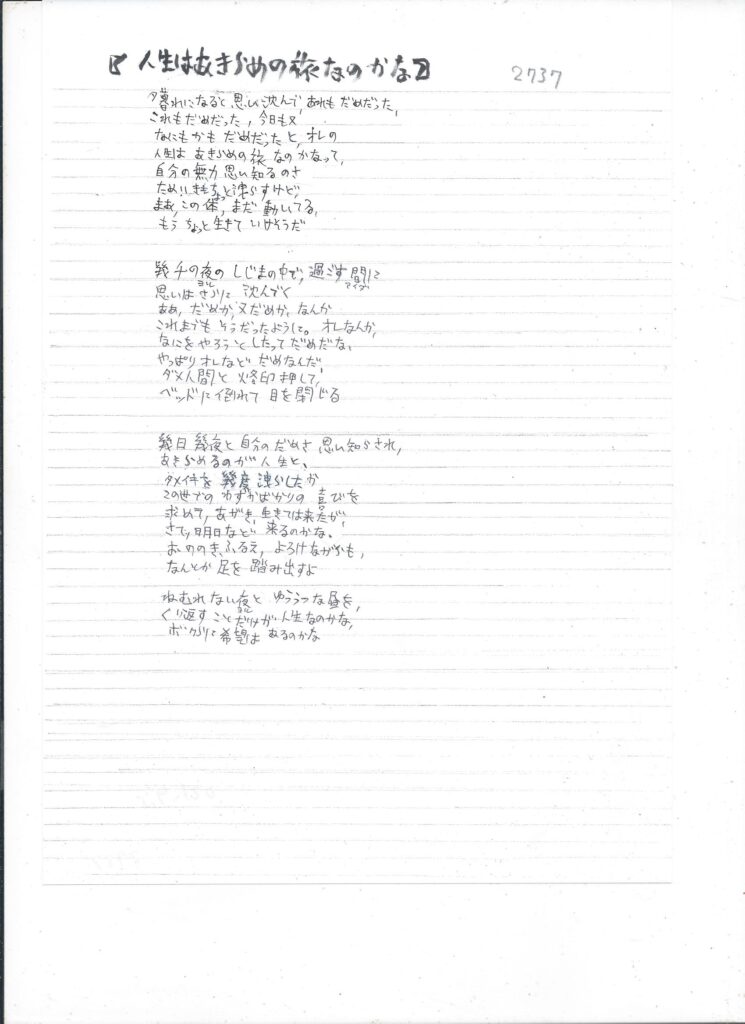 『人生はあきらめの旅なのかな』 2737
夕暮れになると思い沈んで、あれもだめだった、
これもだめだった、今日も又
なにもかもだめだったと、オレの
人生はあきらめの旅なのかなって、
自分の無力思い知るのさ
ため息もちょっと洩らすけど、
まあ、この体、まだ動いてる、
もうちょっと生きていけそうだ
幾千の夜のしじまの中で、過ごす間に
ヨル
マイゴ
思いはさらに沈んでく
ああ、だめか、又だめか、なんか
これまでもそうだったように。オレなんか、
なにをやろうとしたってだめだな、
やっぱりオレなどだめなんだ、
ダメ人間と烙印押して、
ベッドに倒れて目を閉じる
幾日幾夜と自分のだめさ思い知らされ、
あきらめるのが人生と、
タメイキを幾度洩らしたか
この世でのわずかばかりの喜びを
求めて、あがき、生きては来たが、
さて、明日など来るのかな、
おののき、ふるえ、よろけながらも、
なんとか足を踏み出すよ
ねむれない夜とゆううつな昼を、
ヨル
くり返すことだけが人生なのかな、
ボクらに希望はあるのかな